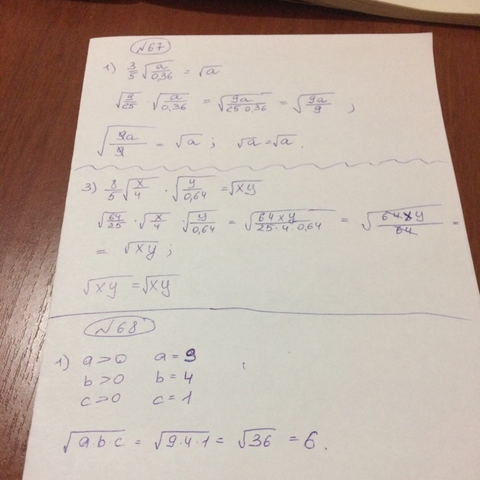 №67
1) 3/5 √(a/0,36) = √a
√(9/25) · √(a/0,36) = √(9a/(25·0,36)) = √(9a/9) ;
√(9a/9) = √a ; √a = √a.
3) 8/5 √(x/4) · √(y/0,64) = √xy
√(64/25) · √(x/4) · √(y/0,64) = √(64xy/(25·4·0,64)) = √(64xy/64) =
= √xy ;
√xy = √xy
№68
1) a>0 a=9
b>0 b=4
c>0 c=1
√(a·b·c) = √(9·4·1) = √36 = 6.